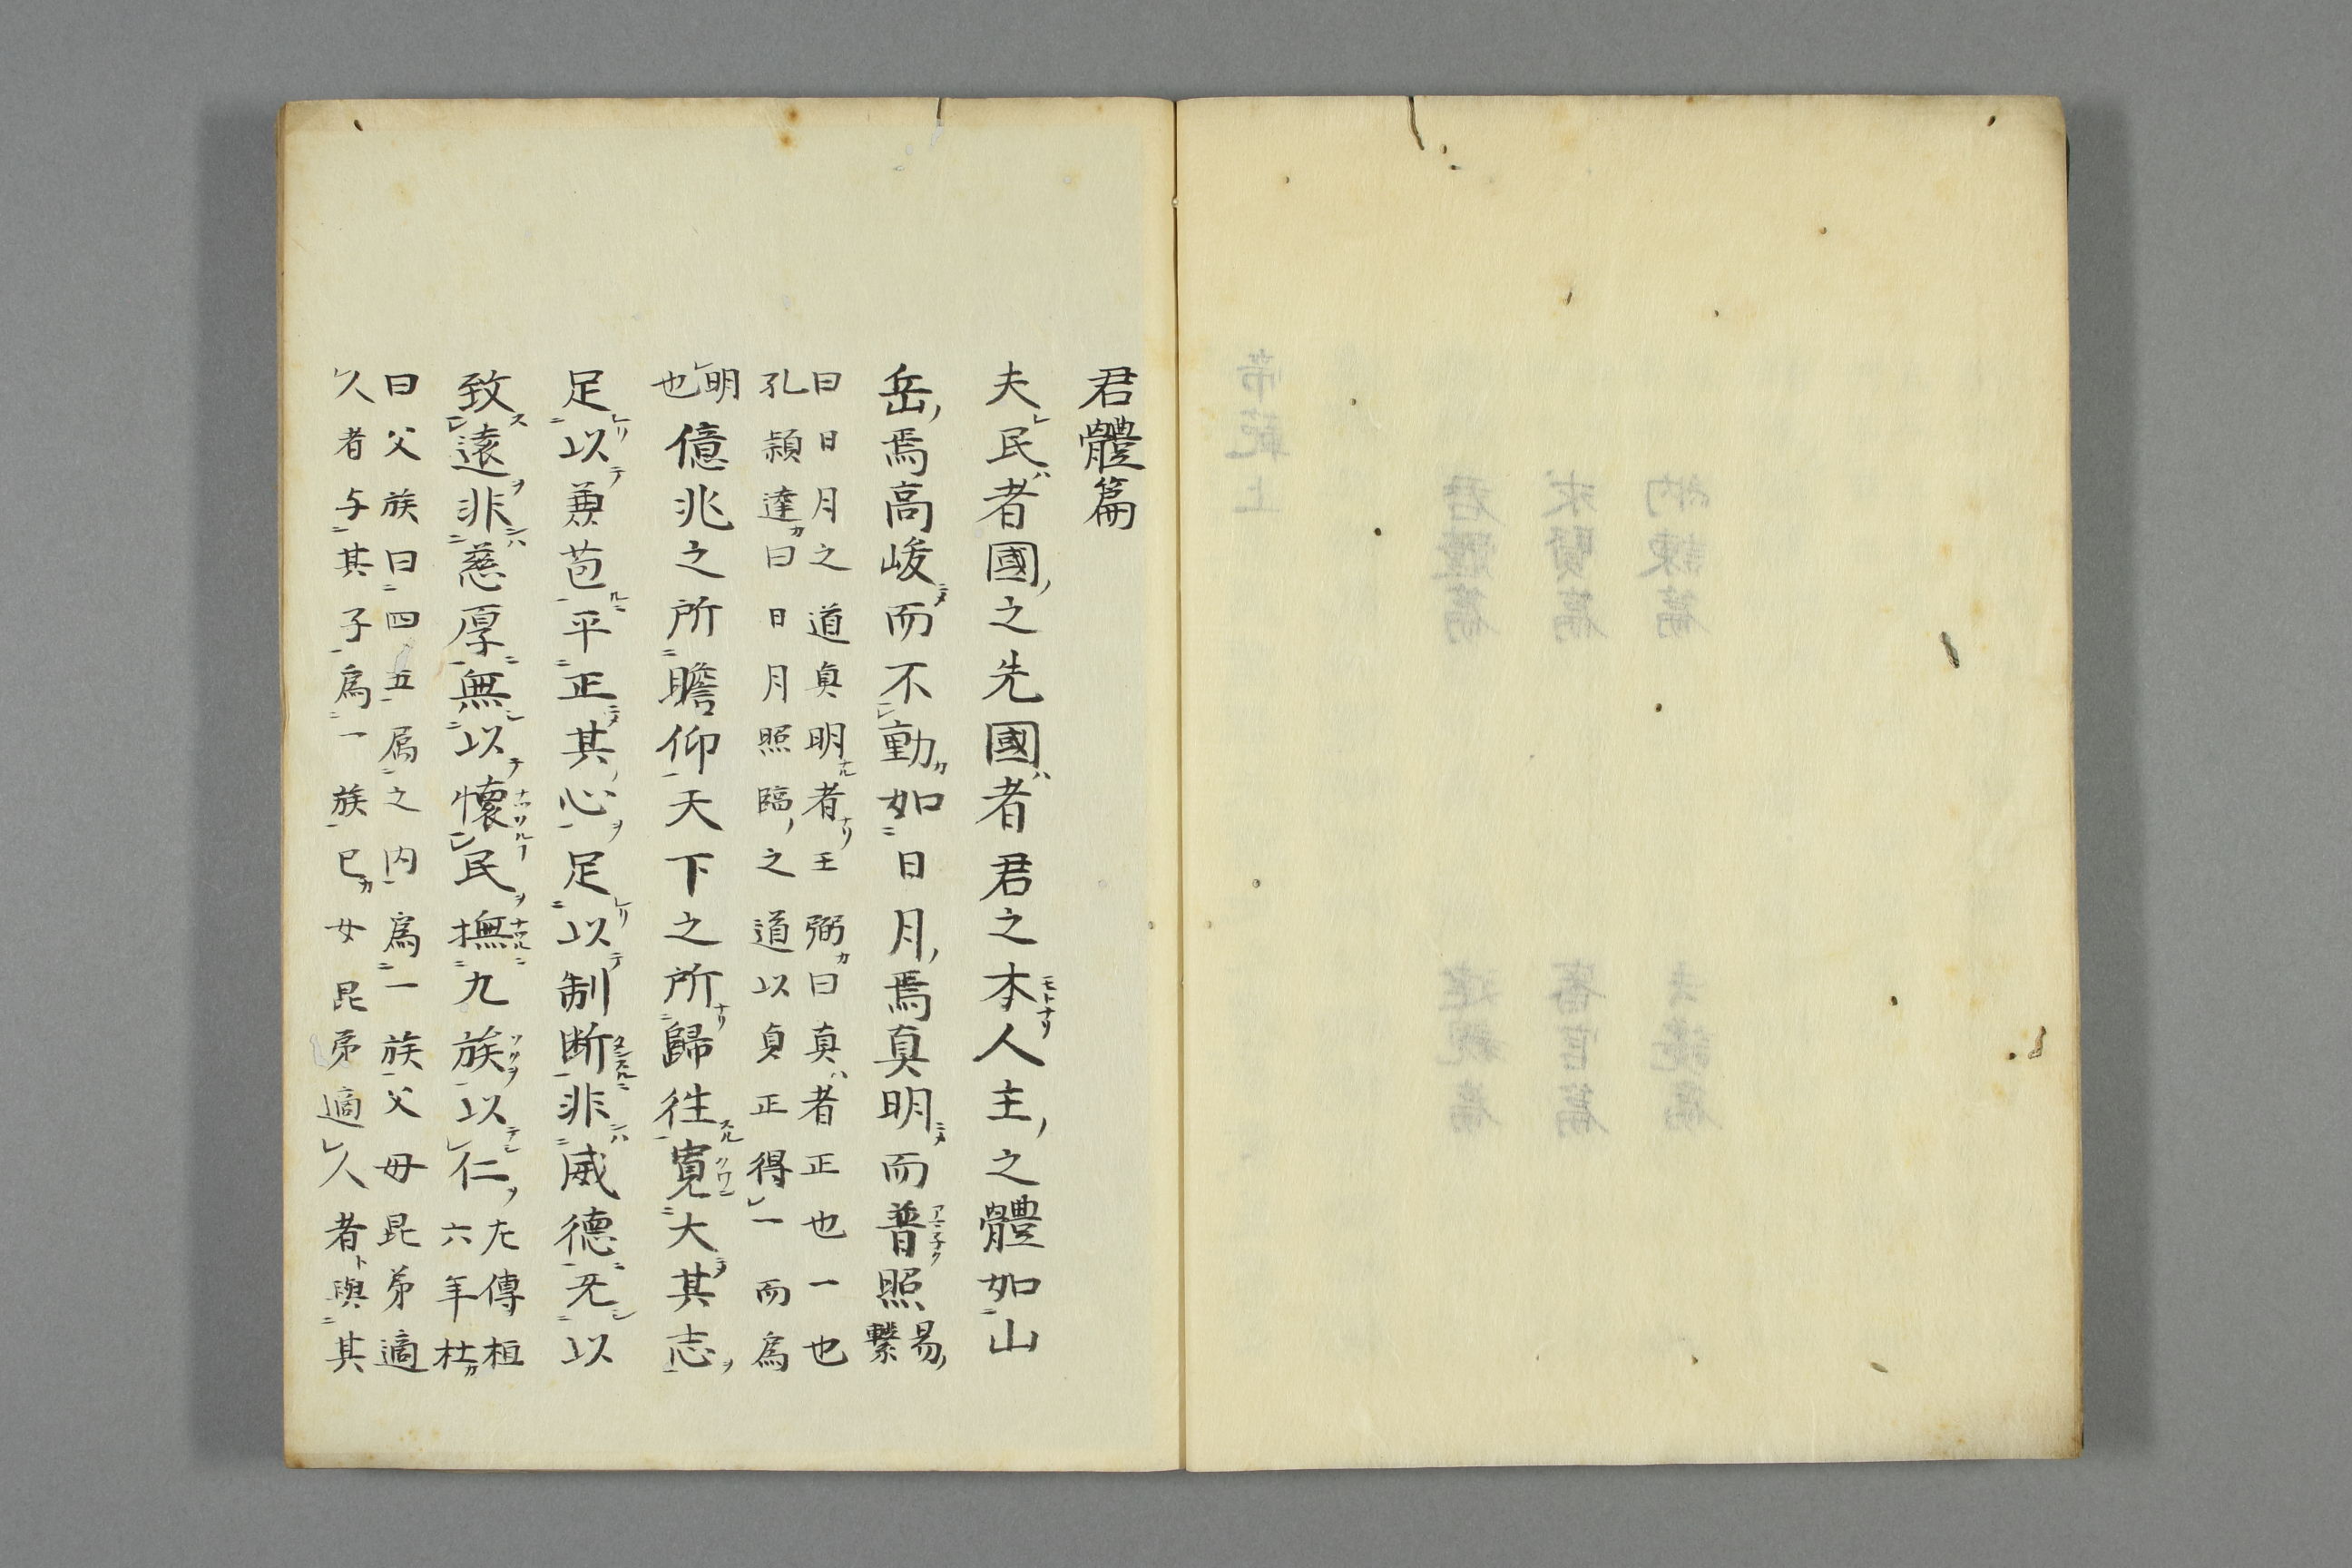 君體篇
夫民者國之先國者君之本人主之體如山
岳焉高峻而不動如日月焉真明而普照易
繫
曰日月之道真明者王弼曰真者正也一也
孔頴達曰日月照臨之道以貞正得一而為
明
也
億兆之所瞻仰天下之所歸往寛大其志
足以兼苞平正其心足以制断非威德无以
致遠非慈厚無以懷民撫九族以仁左傳桓
六年杜
曰父族曰四五属之内為一族父母昆弟適
人者与其子為一族已女昆弟適人者與其
帝範上
納諫篇
去讒篇
求賢篇
審官篇
君體篇
建親篇